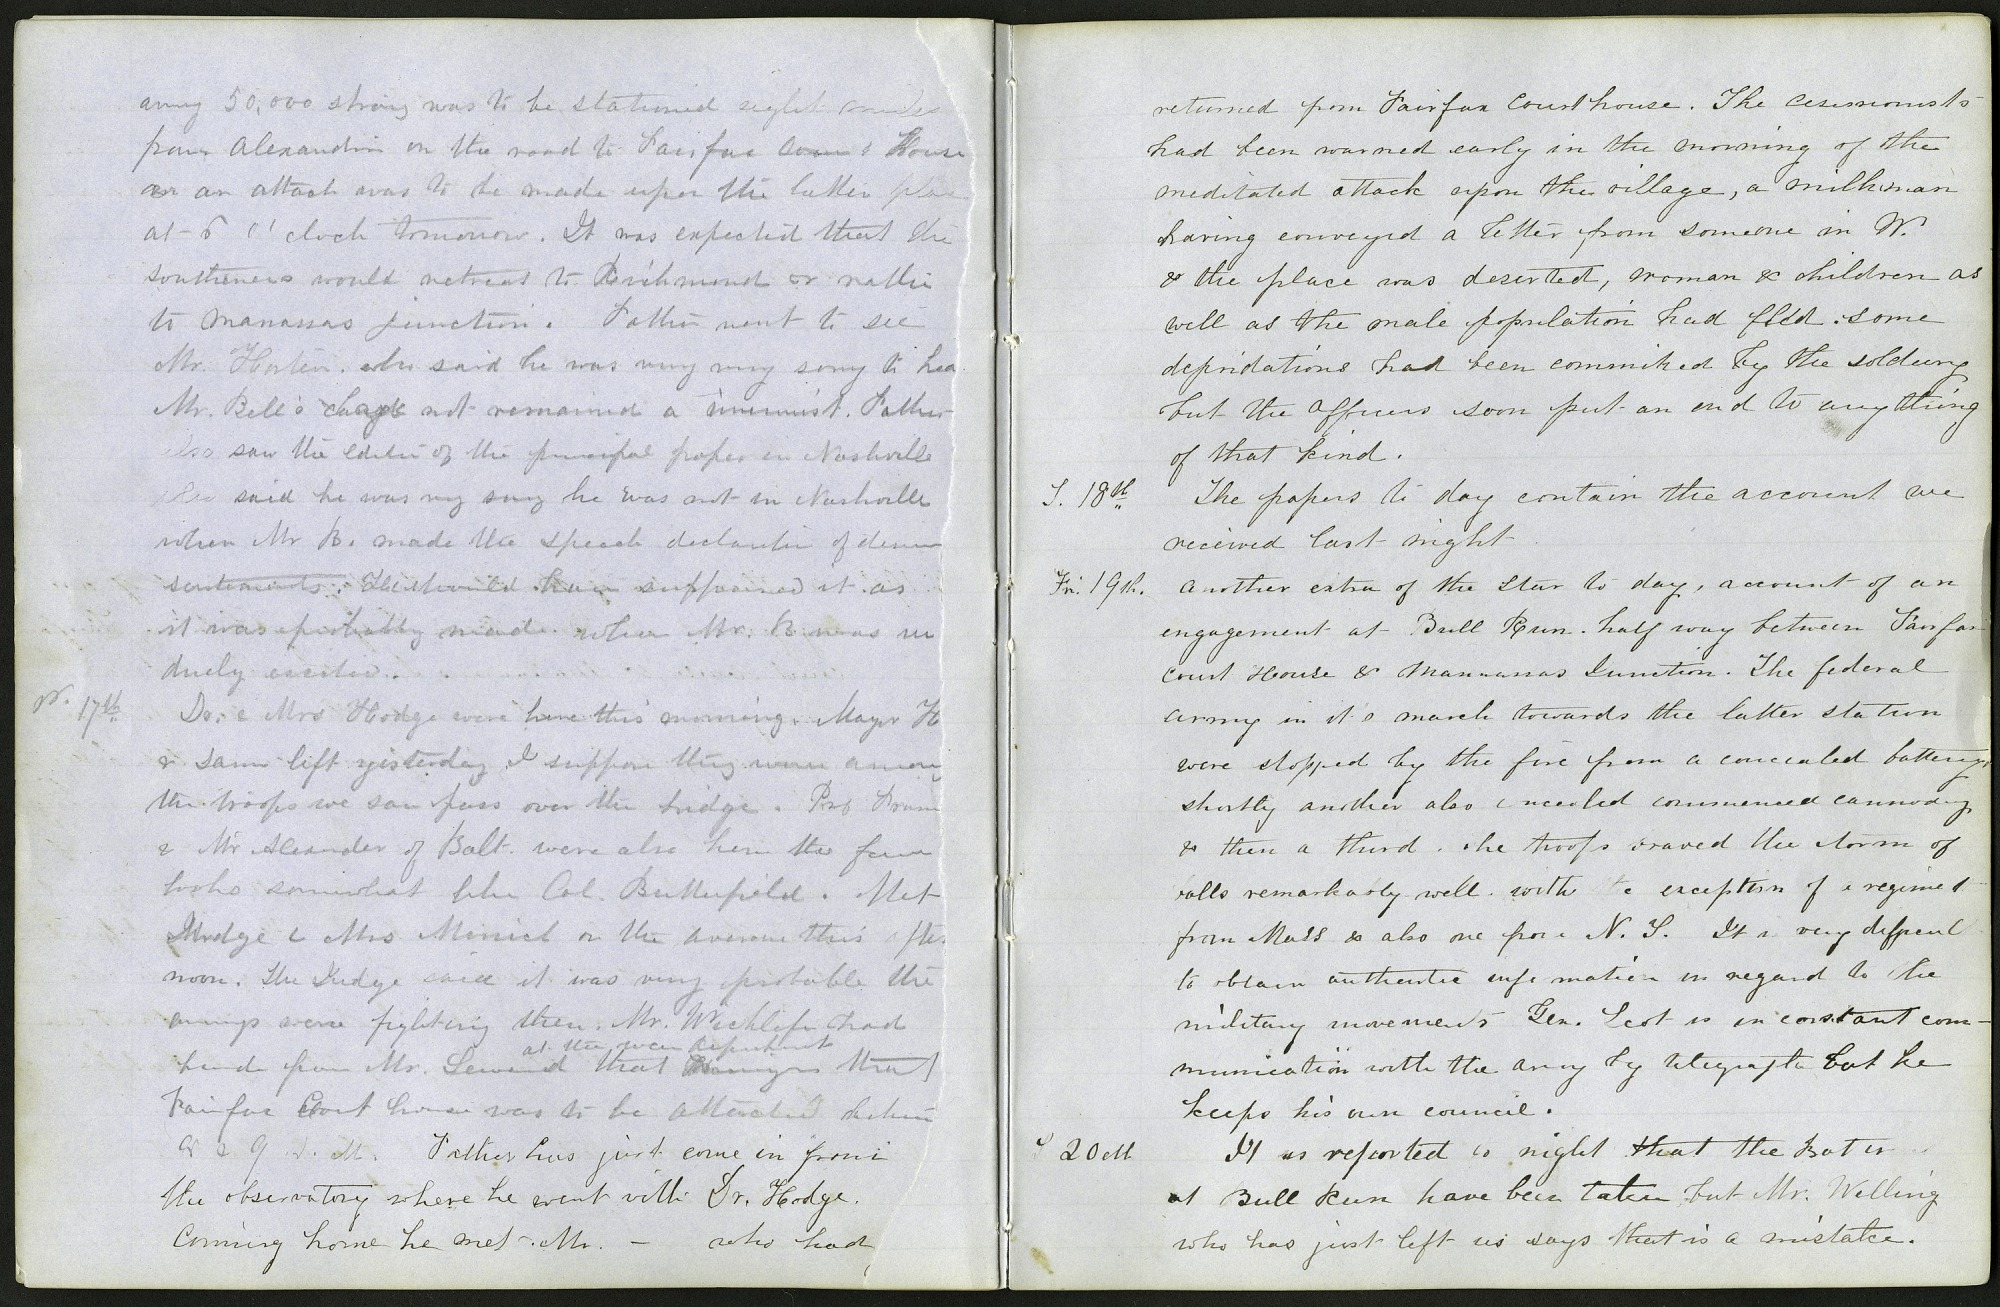 army 50,000 strong was to be stationed eight miles
from Alexandria on the road to Fairfax Court House
an attack was to be made upon the latter place
at 6 o'clock tomorrow. It was expected that the
southerners would retreat to Richmond or rather
to Manassas junction. Father went to see
Mr. who said he was very very sorry to hear
Mr. Bell's had not remained a unionist. Father
also saw the editor of the principal paper in Nashville
who said he was very sorry he was not in Nashville
when Mr B. made the speech of
sentiments. He would have suppressed it as
it was probably made when Mr. B was un
duely excited.
W. 17th Dr. & Mrs Hodge were here this morning. Mayor H
& Sam left yesterday I suppose they were among
the troops we saw pass over the bridge. Prof
& Mr Alexander of Balt. were also here the
looks somewhat like Col. Butterfield. Met
Judge & Mrs on the avenue this after
noon. The Judge said it was very probable the
armys were fighting then. Mr. had
at the war department
from Mr. Seward that
Fairfax Court house was to be attacked between
8 & 9 A. M. Father has just come in from
the observatory where he went with Dr. Hodge.
Coming home he met Mr. — who had
returned from Fairfax Court house. The cesessionists
had been warned early in the morning of the
meditated attack upon the village, a milkman
having conveyed a letter from someone in W.
& the place was deserted, woman & children as
well as the male population had fled. some
depridations had been commited by the soldiery
but the officers soon put an end to any thing
of that kind.
T. 18th The papers to day contain the account we
received last night
Fri. 19th. Another extra of the Star to day, account of an
engagement at Bull Run. half way between Fairfax
Court House & Manassas Junction. The federal
army in it's march towards the latter station
were stopped by the fire from a concealed battery,
shortly another also concealed commenced cannonading
& then a third. The troops braved the storm of
balls remarkably well with the exception of a regiment
from Mass & also one from N. Y. It is very difficult
to obtain authentic information in regard to the
military movements Gen. Scot is in constant com-
munication with the army by telegraph but he
keeps his own council.
S 20th It is reported to night that the Batteries
at Bull Run have been taken but Mr. Welling
who has just left us says that is a mistake.